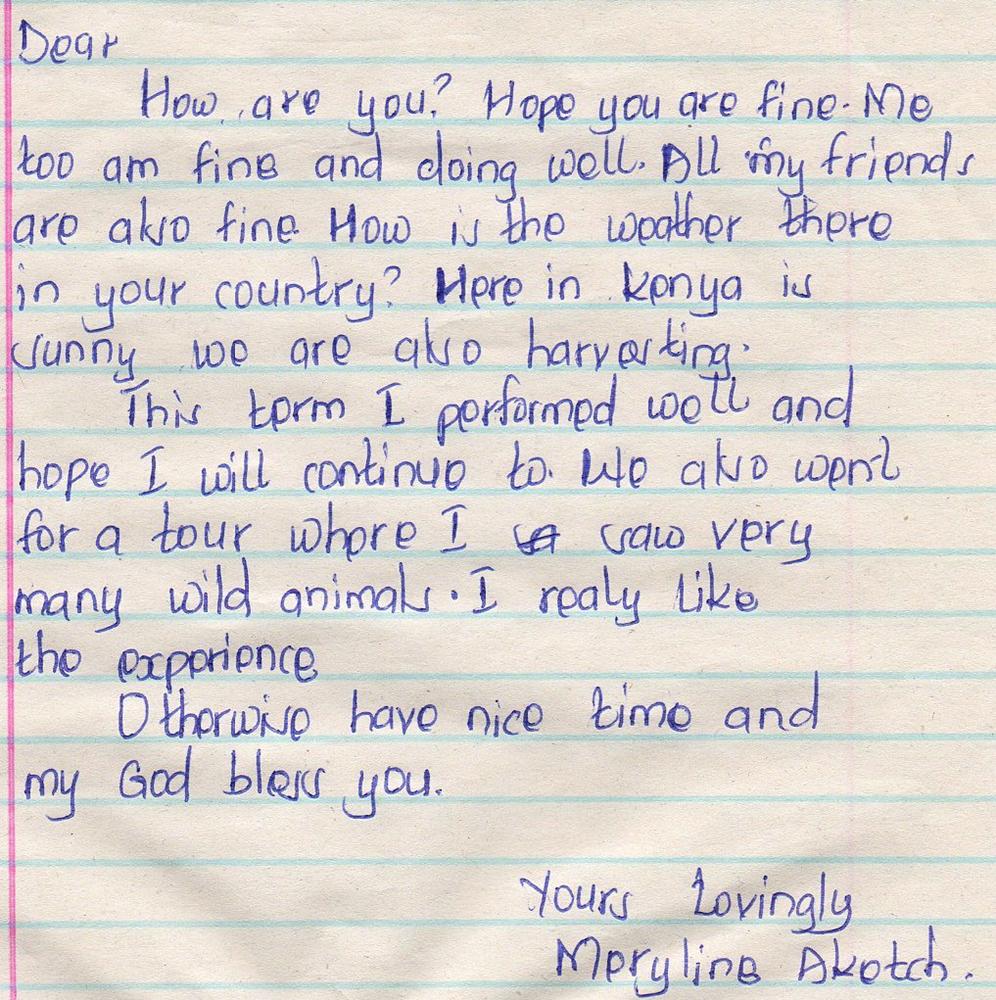 Dear
How are you? Hope you are fine. Me
too am fine and doing well. All my friends
are also fine. How is the weather there
in your country? Here in kenya is
sunny we are also harvesting.
This term I performed well and
hope I will continue to. We also went
for a tour where I saw very
many wild animals. I realy like
the experience
Otherwise have nice time and
my God bless you.
Yours Lovingly
Meryline Aketch.